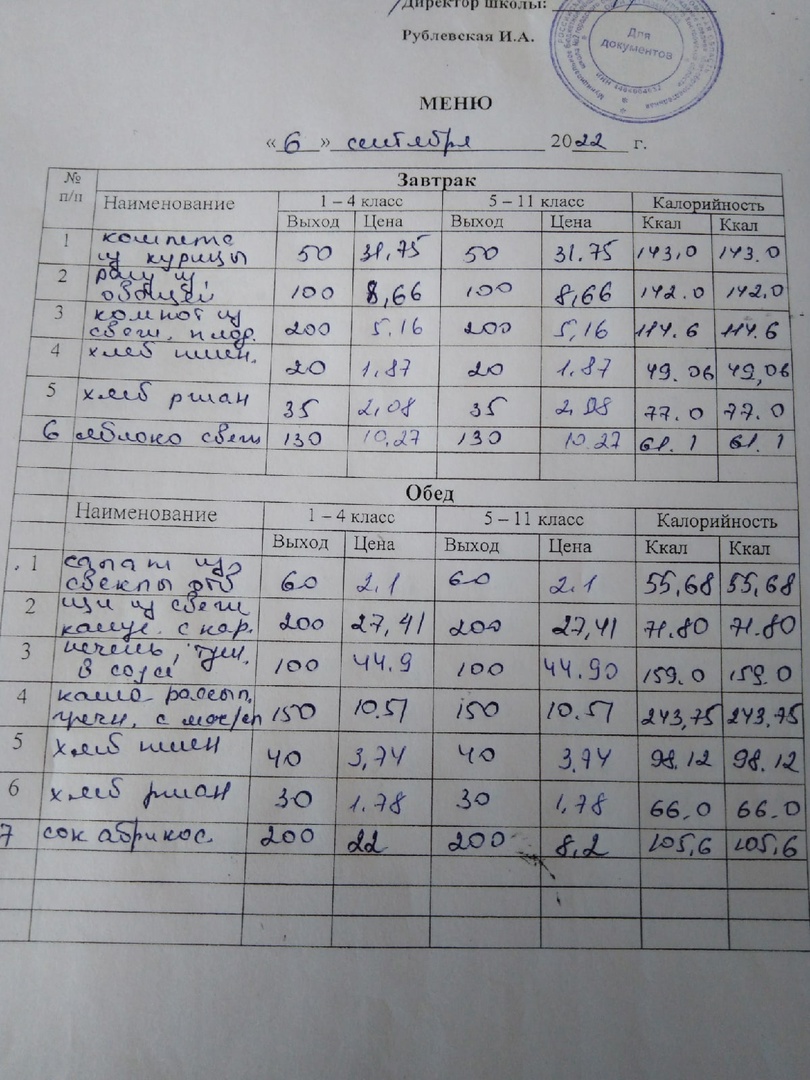 Директор школы:
Рублевская И.А.
Для
документов
МЕНЮ
«6» сентября 2022 г.
№ п/п Завтрак
Наименование 1 – 4 класс 5 – 11 класс Калорийность
Выход Цена Выход Цена Ккал Ккал
1 котлета
из курицы 50 31,75 50 31.75 143,0 143.0
2 рагу из
овощей 100 8,66 100 8,66 142.0 142,0
3 компот из
свеж. плод. 200 5,16 200 5,16 114.6 114.6
4 хлеб пшен. 20 1,87 20 1,87 49.06 49,06
5 хлеб ржан 35 2,08 35 2,08 77.0 77.0
6 яблоко свеж 130 10,27 130 10.27 61.1 61.1
Обед
Наименование 1 – 4 класс 5 – 11 класс Калорийность
Выход Цена Выход Цена Ккал Ккал
1 салат из
свеклы отв 60 2.1 60 2.1 55,68 55,68
2 щи из свеж
капус. с кар. 200 27,41 200 27,41 71.80 71.80
3 печень, туш.
в соусе 100 44.9 100 44.90 159.0 159.0
4 каша рассып.
гречн. с мос/сл 150 10.51 150 10.51 243,75 243,75
5 хлеб пшен 40 3,74 40 3,74 98.12 98.12
6 хлеб ржан 30 1.78 30 1,78 66.0 66.0
7 сок абрикос. 200 22 200 8,2 105,6 105,6